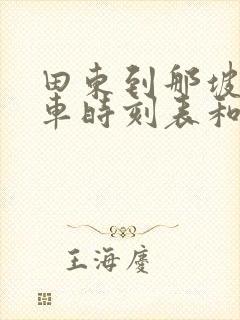 田东到那坡
车时刻表和
王海庆